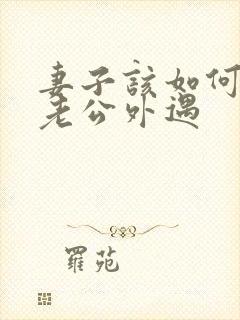 妻子該如何
老公外遇
羅苑